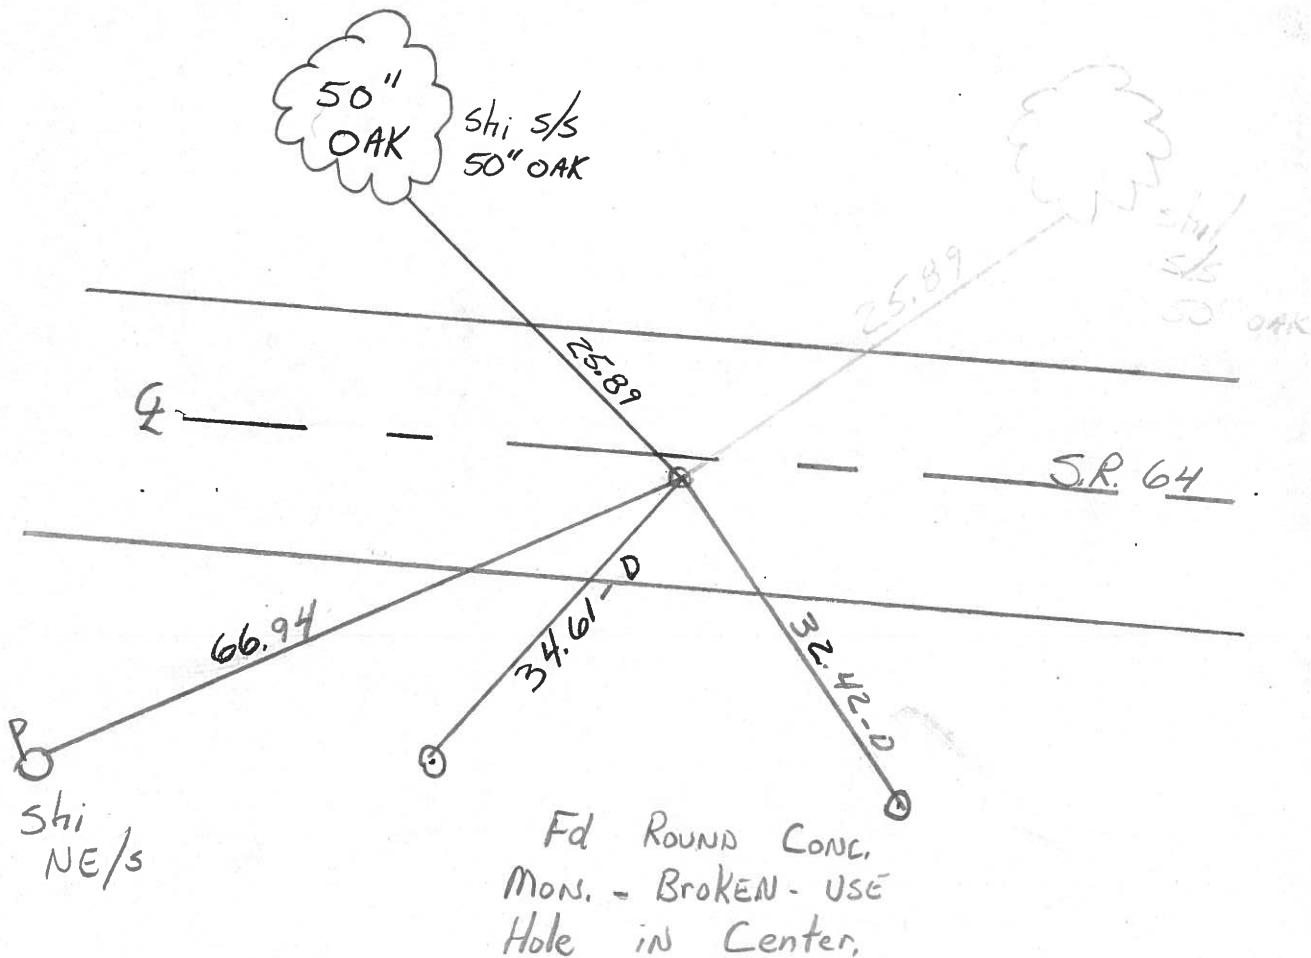 50"
OAK
Shi S/S
50" OAK
Shi
S/S
50 OAK
25.89
25.89
℄
S.R. 64
66.94
34.61-D
32.42-D
P
Shi
NE/S
Fd ROUND CONC.
MON. - BROKEN - USE
Hole iN Center.